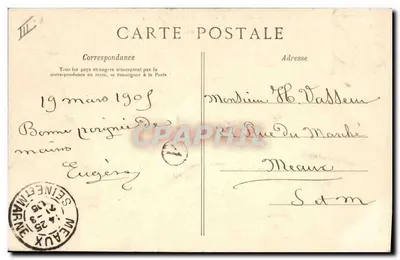 III
CARTE POSTALE
Correspondance
Tous les pays étrangers n'acceptent pas la
correspondance au recto, se renseigner à la Poste
Adresse
19 mars 1905
Bonne poignée de
mains
Eugène
Monsieur H. Vasseur
Rue du Marché
Meaux
S et M
MEAUX
SEINE-ET-MARNE